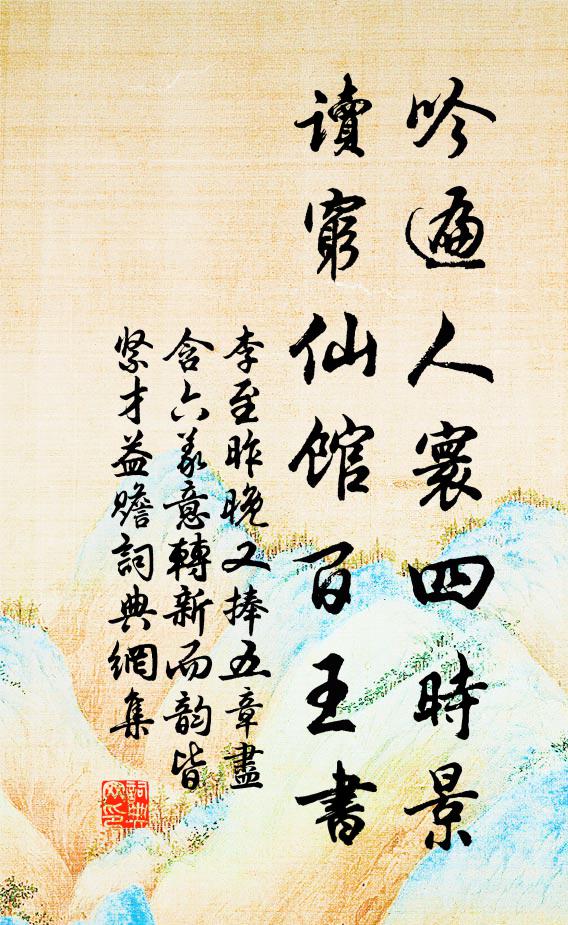 吟遍人寰四時景
讀窮仙館百王書
李至昨晚又捧五章盡
含六義意轉新而韵皆
紧才益贍詞典網集
詞典網印